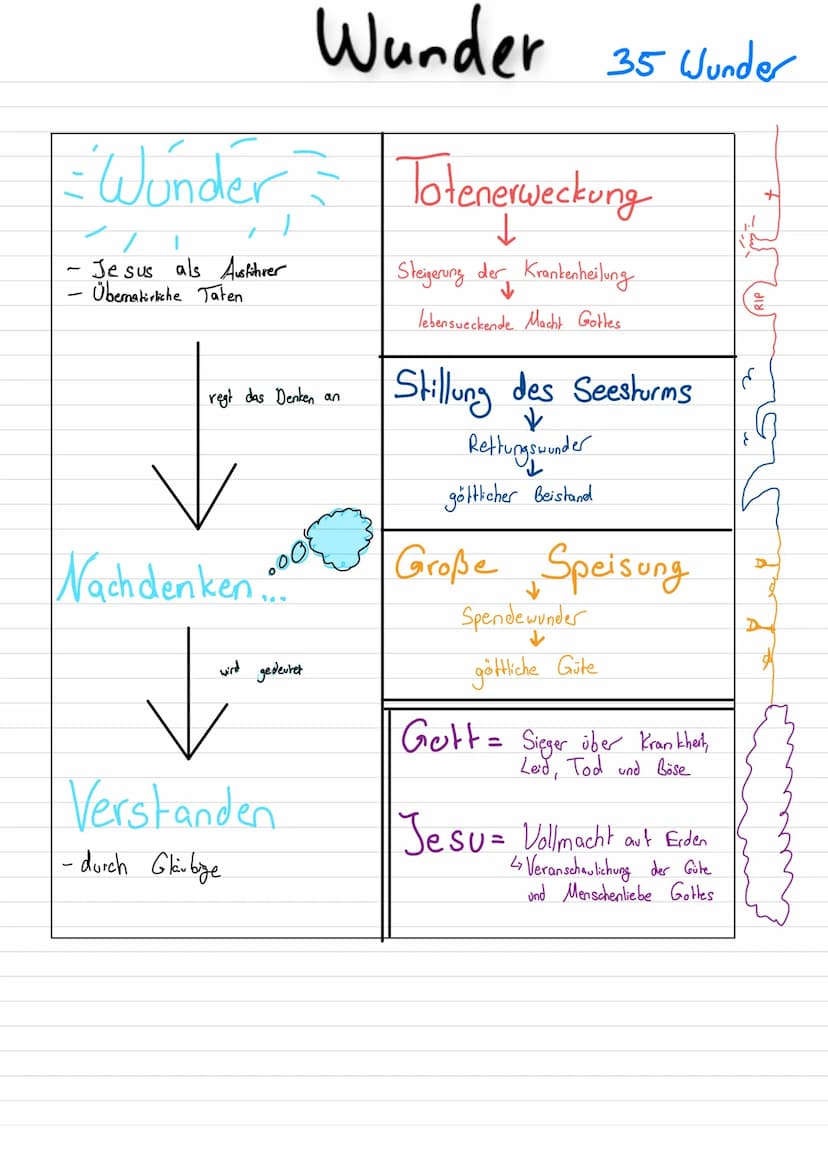 Wunder
35 Wunder
Wunder
- Jesus als Ausführer
- Übernatürliche Taten
regt das Denken an
Nachdenken...
wird gedeutet
Verstanden
- durch Gläubige
Totenerweckung
↓
Steigerung der Krankenheilung
↓
lebensweckende Macht Gottes
RIP
Stillung des Seesturms
↓
Rettungswunder
↓
göttlicher Beistand
Große Speisung
↓
Spendewunder
↓
göttliche Güte
Gott = Sieger über Krankheit,
Leid, Tod und Böse
Jesu = Vollmacht auf Erden
↳ Veranschaulichung der Güte
und Menschenliebe Gottes